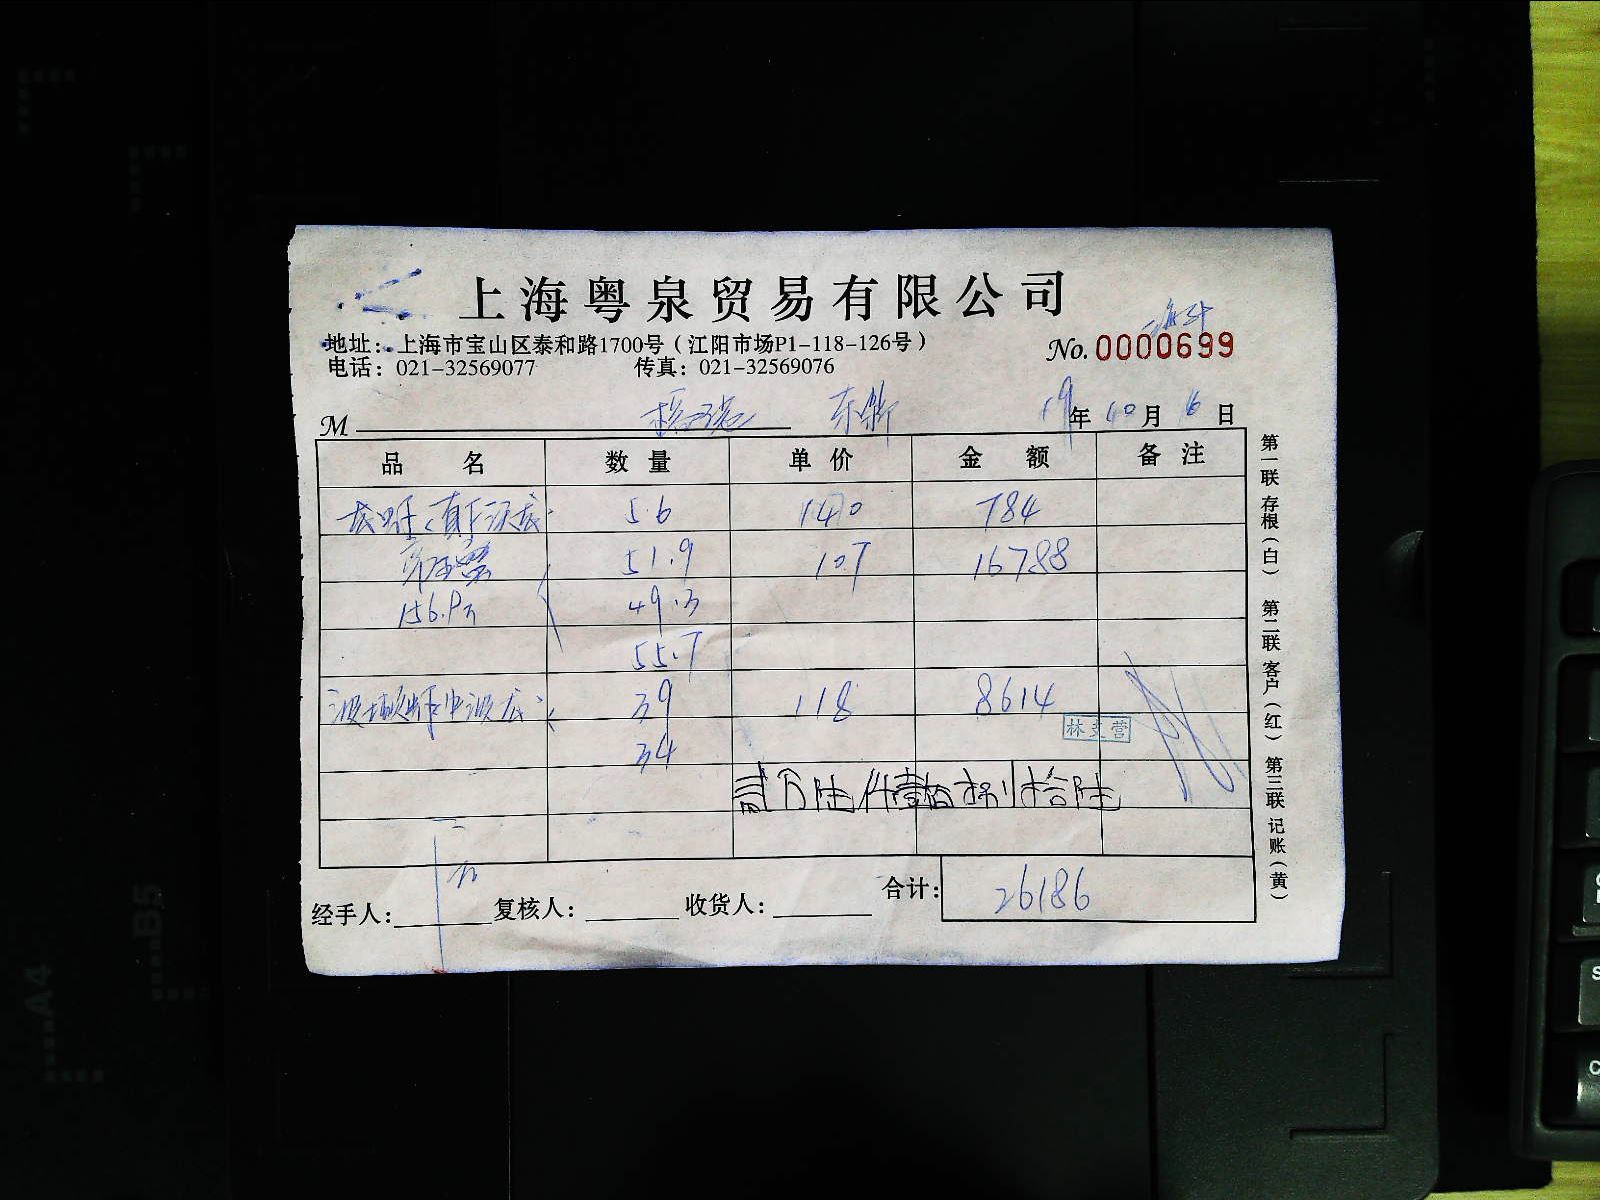 上海粤泉贸易有限公司
地址：上海市宝山区泰和路1700号（江阳市场P1-118-126号）
电话：021-32569077 传真：021-32569076
No. 0000699
M 19年10月16日
品名 数量 单价 金额 备注
5.6 140 784
51.9 107 16788
156.9斤 49.3
55.7
39 118 8614
34
林 营
贰万陆仟壹佰捌拾陆
合计： 26186
经手人： 复核人： 收货人：
第一联 存根（白） 第二联 客户（红） 第三联 记账（黄）
A4
B5